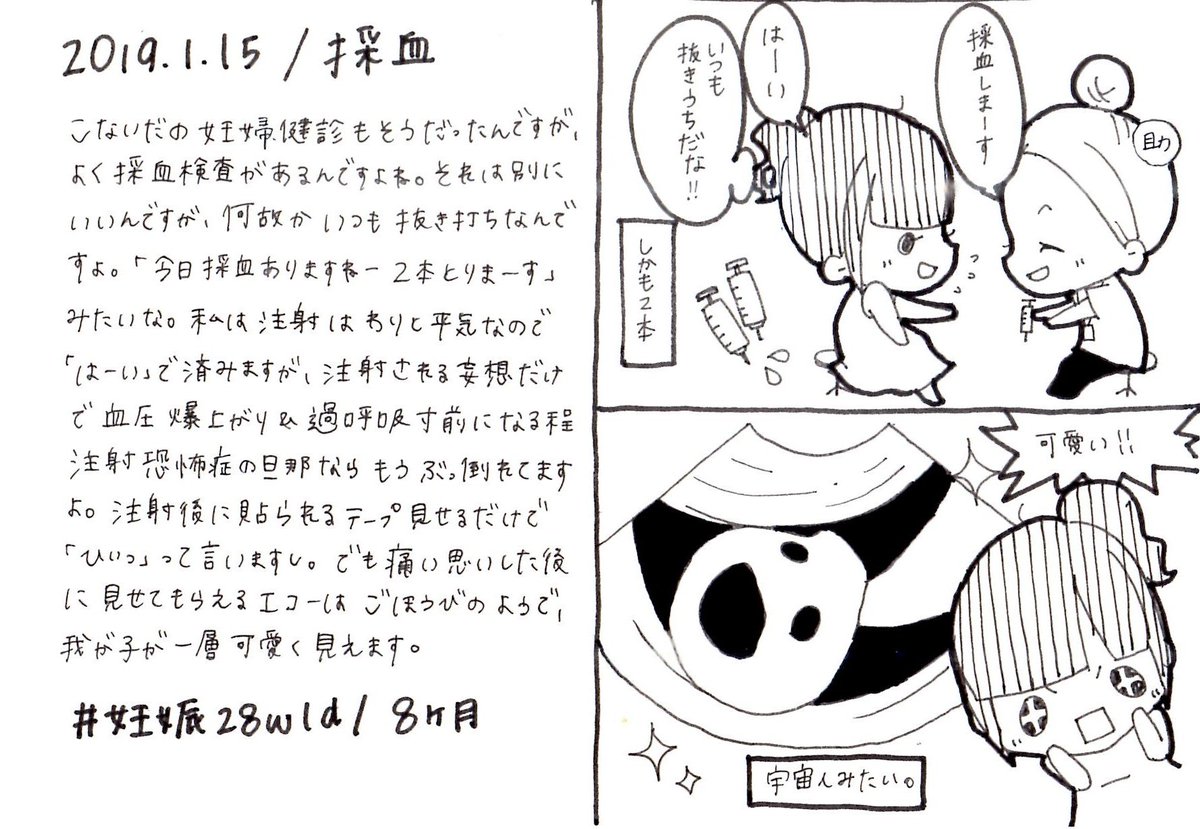 2019.1.15/採血
こないだの妊婦健診もそうだったんですが、
よく採血検査があるんですよね。それは別に
いいんですが、何故かいつも抜き打ちなんで
すよ。「今日採血ありますねー2本とりまーす」
みたいな。私は注射はわりと平気なので
「はーい」で済みますが、注射される妄想だけ
で血圧爆上がり&過呼吸寸前になる程
注射恐怖症の旦那ならもうぶっ倒れてます
よ。注射後に貼られるテープ見せるだけで
「ひいっ」って言いますし。でも痛い思いした後
に見せてもらえるエコーはごほうびのようで、
我が子が一層可愛く見えます。
#妊娠28w1d/8ヶ月
採血しまーす
助
はーい
いつも
抜きうちだな!!
しかも2本
可愛い!!
宇宙人みたい。